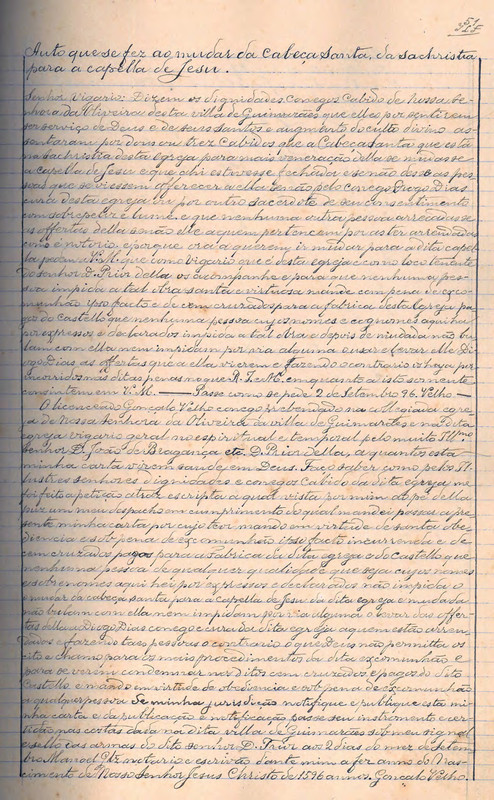 Auto que se fez ao mudar da Cabeça Santa, da sachristia
para a capella de Jesu.
Senhor Vigario: Dizem os dignidades, conegos, Cabido de Nossa Se-
nhora da Oliveira desta villa de Guimarães que elles por sentirem
ser serviço de Deus e de seus santos e augmento do culto divino as-
sentaram por dous ou trez Cabidos que a Cabeça santa que está
na sachristia desta Egreja para mais veneração della se mudasse
a capella de Jesu e que ahi estivesse fechada e senão desse ás pes-
soas que se viessem offerecer a ella senão pelo Conego Diogo Dias
cura desta egreja e ou por outro sacerdote de seu consentimento
com sobrepeliz e lume, e que nenhuma outra pessoa arrecadasse
as offertas della senão elle a quem pertencem por as ter arrendadas
como é notorio, e porque ora a querem ir mudar para a dita capel-
la pedem a V. M. que como Vigario que é desta egreja e como loco tenente
do senhor D. Prior della os acompanhe e para que nenhuma pes-
soa impida a tal obra santa e virtuosa mande com pena de exco-
munhão ipso facto e de cem cruzados para a fabrica desta Egreja pa-
gos do Castello que nenhuma pessoa cujos nomes e cognomes aqui ha
por expressos e declarados impida a tal obra e depois de mudada não bu-
lam com ella nem impidam por via alguma o usar e levar elle Di-
ogo Dias as offertas que a ella vierem e fazendo o contrario os haja por
incorridos nas ditas penas no que R. J. e M. em quanto a isto somente
consintem em V. M. — Passe como se pede 2 de Setembro 96. Velho —
O licenceado Gonçalo Velho conego prebendado na collegiada egre-
ja de Nossa Senhora da Oliveira da villa de Guimarães e na dita
egreja vigario geral no espiritual e temporal pelo muito Illmo
senhor D. João de Bragança etc. D. Prior della, a quantos esta
minha carta virem saude em Deus. Faço saber como pelos Il-
lustres senhores dignidades e conegos Cabido da dita egreja me
foi feita a petição atraz escripta a qual vista por mim ao pé della
puz um meu despacho em cumprimento do qual mandei passar a pre-
sente minha carta por cujo teor mando em virtude de santa obe-
diencia e sob pena de excomunhão ipso facto incurrenda e de
cem cruzados pagos para a Fabrica da dita egreja e do Castello que
nenhuma pessoa de qualquer qualidade que seja cujos nomes
e sobrenomes aqui hei por expressos e declarados não impida o
mudar da cabeça santa para a capella de Jesu da dita egreja e mudada
não bulam com ella nem impidam por via alguma o levar das offer-
tas della a Diogo Dias conego e cura da dita egreja a quem estão arren-
dados e fazendo taes pessoas o contrario o que Deus não permitta os
cito e chamo para os mais procedimentos da dita excomunhão e
para se verem condemnar nos ditos cem cruzados e pagos do dito
Castello e mando em virtude de obediencia e sob pena de excomunhão
a qualquer pessoa de minha jurisdição notifique e publique esta mi-
nha carta e da publicação e notificação passe seu instrumento e cer-
tidão nas costas dada na dita villa de Guimarães sob meu signal
e sello das armas do dito senhor D. Prior aos 2 dias do mez de Setem-
bro Manoel Glz notario e escrivão dante mim a fez anno do Nas-
cimento de Nosso Senhor Jesus Christo de 1596 annos. Gonçalo Velho.